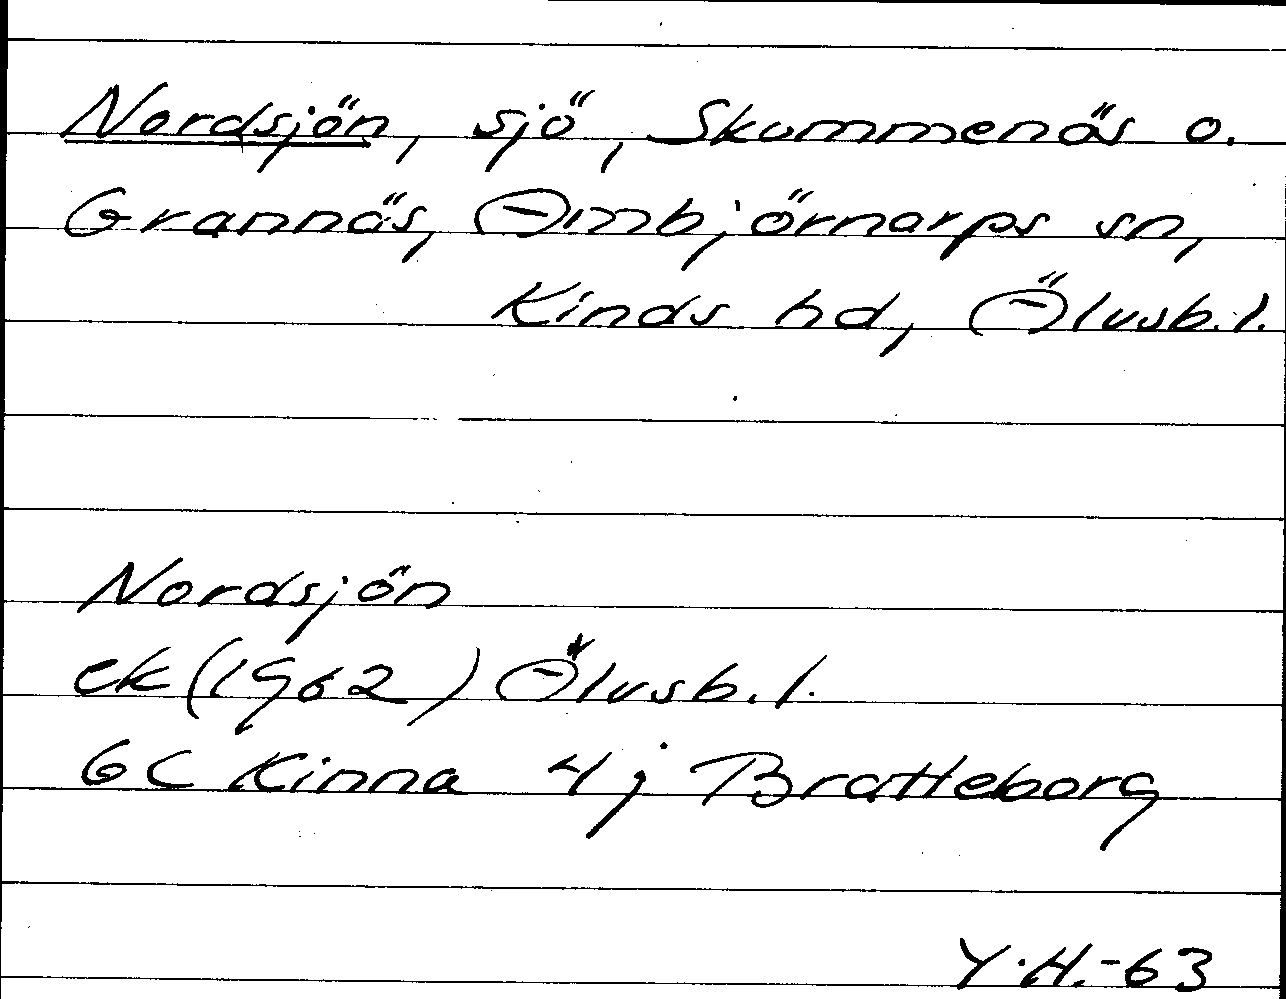 Nordsjön, sjö, Skummenäs o.
Grannäs, Ombjörnarps sn,
Kinds hd, Älvsb.l.
Nordsjön
ek (1962) Älvsb.l.
6C Kinna 4j Bratteborg
Y.H.-63